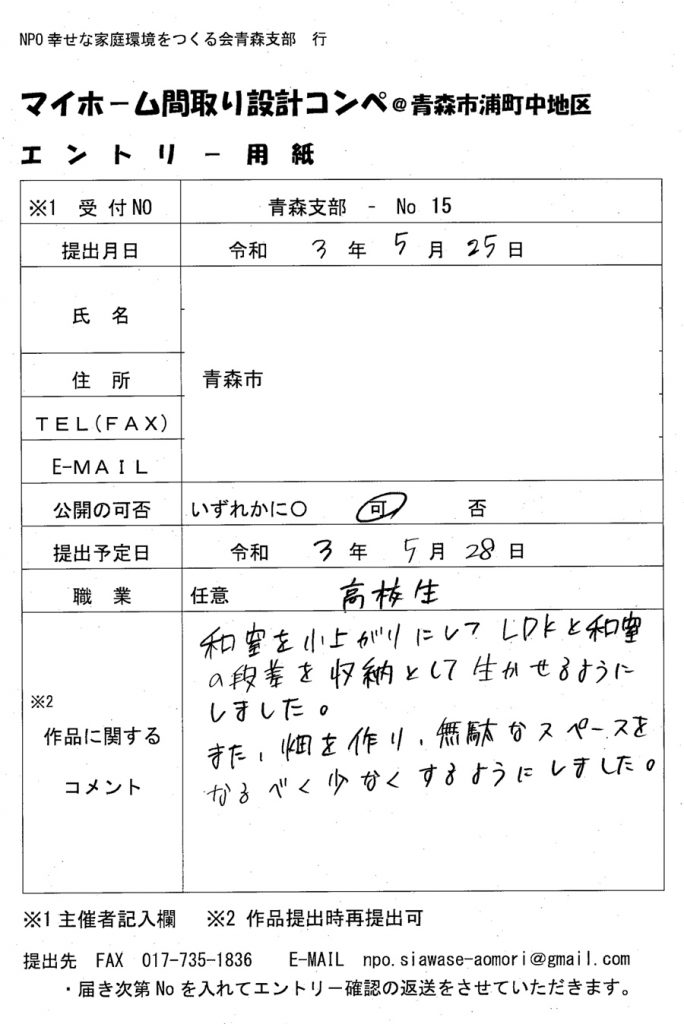 NPO幸せな家庭環境をつくる会青森支部　行
マイホーム間取り設計コンペ＠青森市浦町中地区
エントリー用紙
※1　受付NO　青森支部　-　No 15
提出月日　令和　3　年　5　月　25日
氏　名
住　所　青森市
ＴＥＬ(ＦＡＸ)
E-ＭＡＩＬ
公開の可否　いずれかに○　可　否
提出予定日　令和　3　年　5月　28日
職　業　任意　高校生
※2
作品に関する
コメント
和室を小上がりにしてLDKと和室
の段差を収納として生かせるように
しました。
また、畑を作り、無駄なスペースを
なるべく少なくするようにしました。
※1主催者記入欄　※2 作品提出時再提出可
提出先　FAX　017-735-1836　E-MAIL　npo.siawase-aomori@gmail.com
・届き次第Noを入れてエントリー確認の返送をさせていただきます。